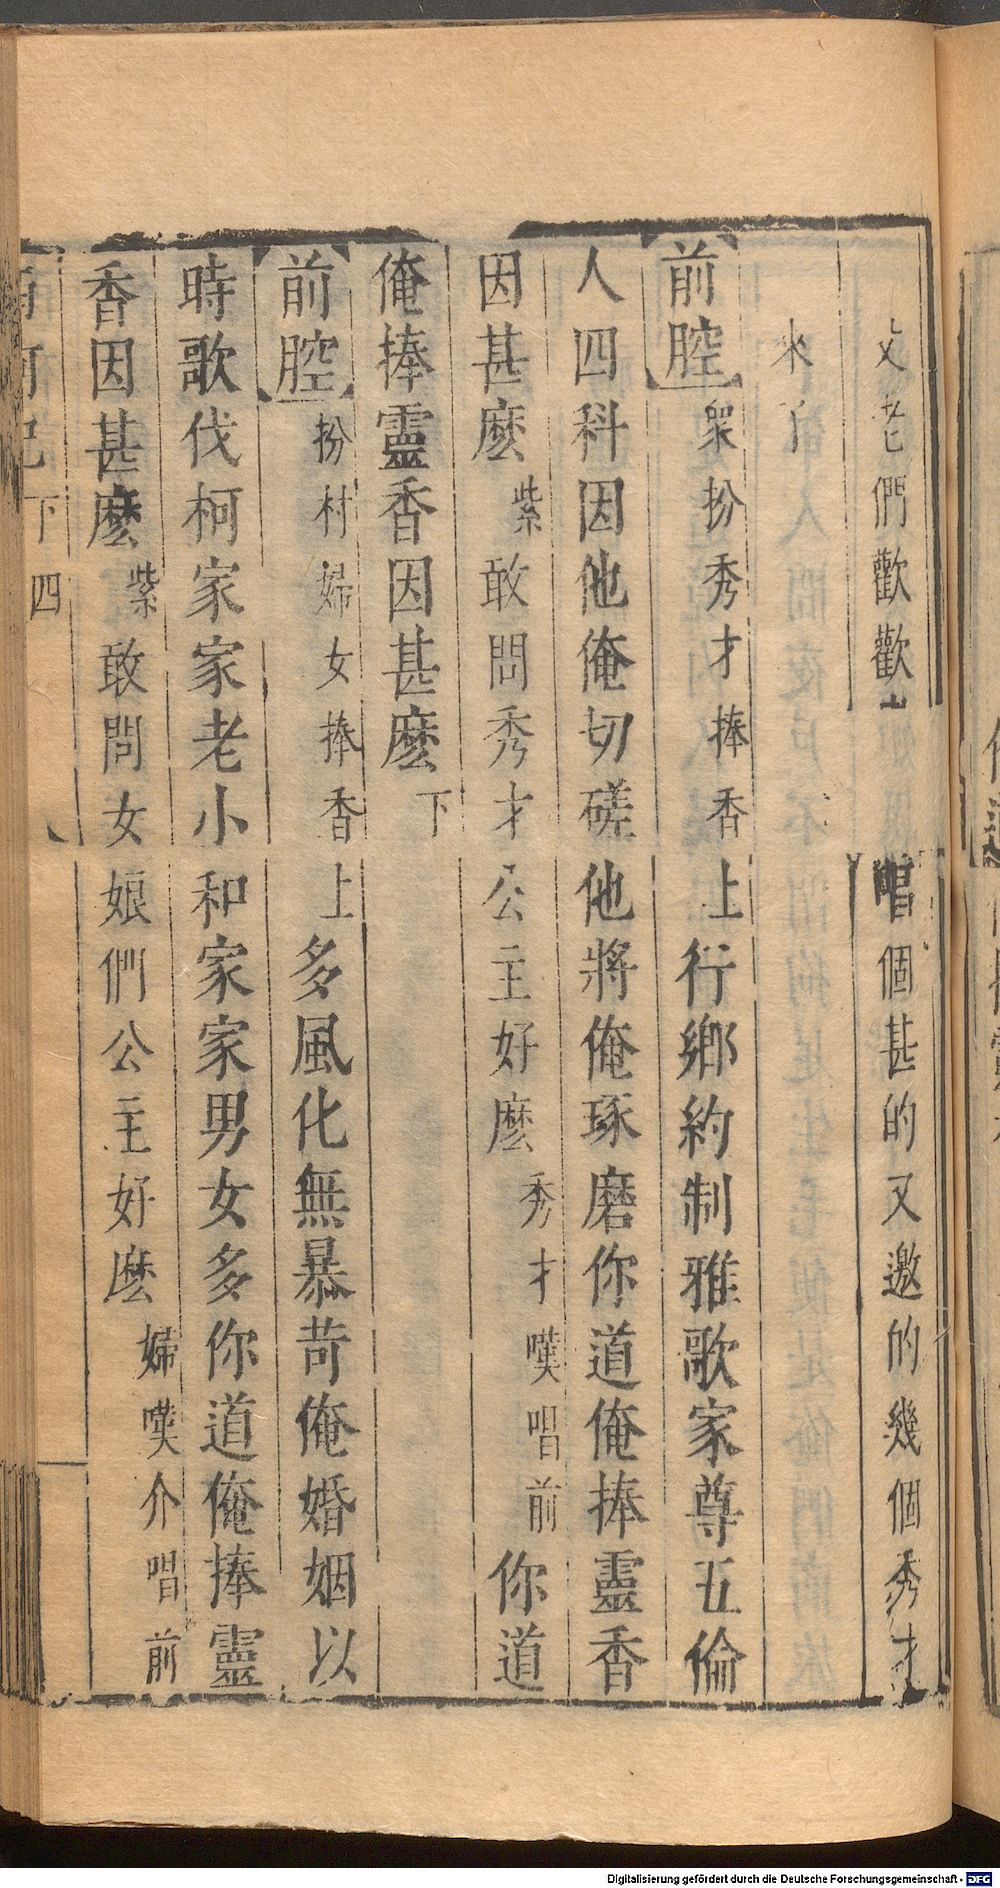 父老們歡歡 唱個甚的又邀的幾個秀才
來了
【前腔】眾扮秀才捧香上行鄉約制雅歌家尊五倫
人四科因他俺切磋他將俺琢磨你道俺捧靈香
因甚麽紫敢問秀才公主好麽秀才嘆唱前你道
俺捧靈香因甚麽下
【前腔】扮村婦女捧香上多風化無暴苛俺婚姻以
時歌伐柯家家老小和家家男女多你道俺捧靈
香因甚麽紫敢問女娘們公主好麽婦嘆介唱前
南柯記 下 四
Digitalisierung gefördert durch die Deutsche Forschungsgemeinschaft - DFG